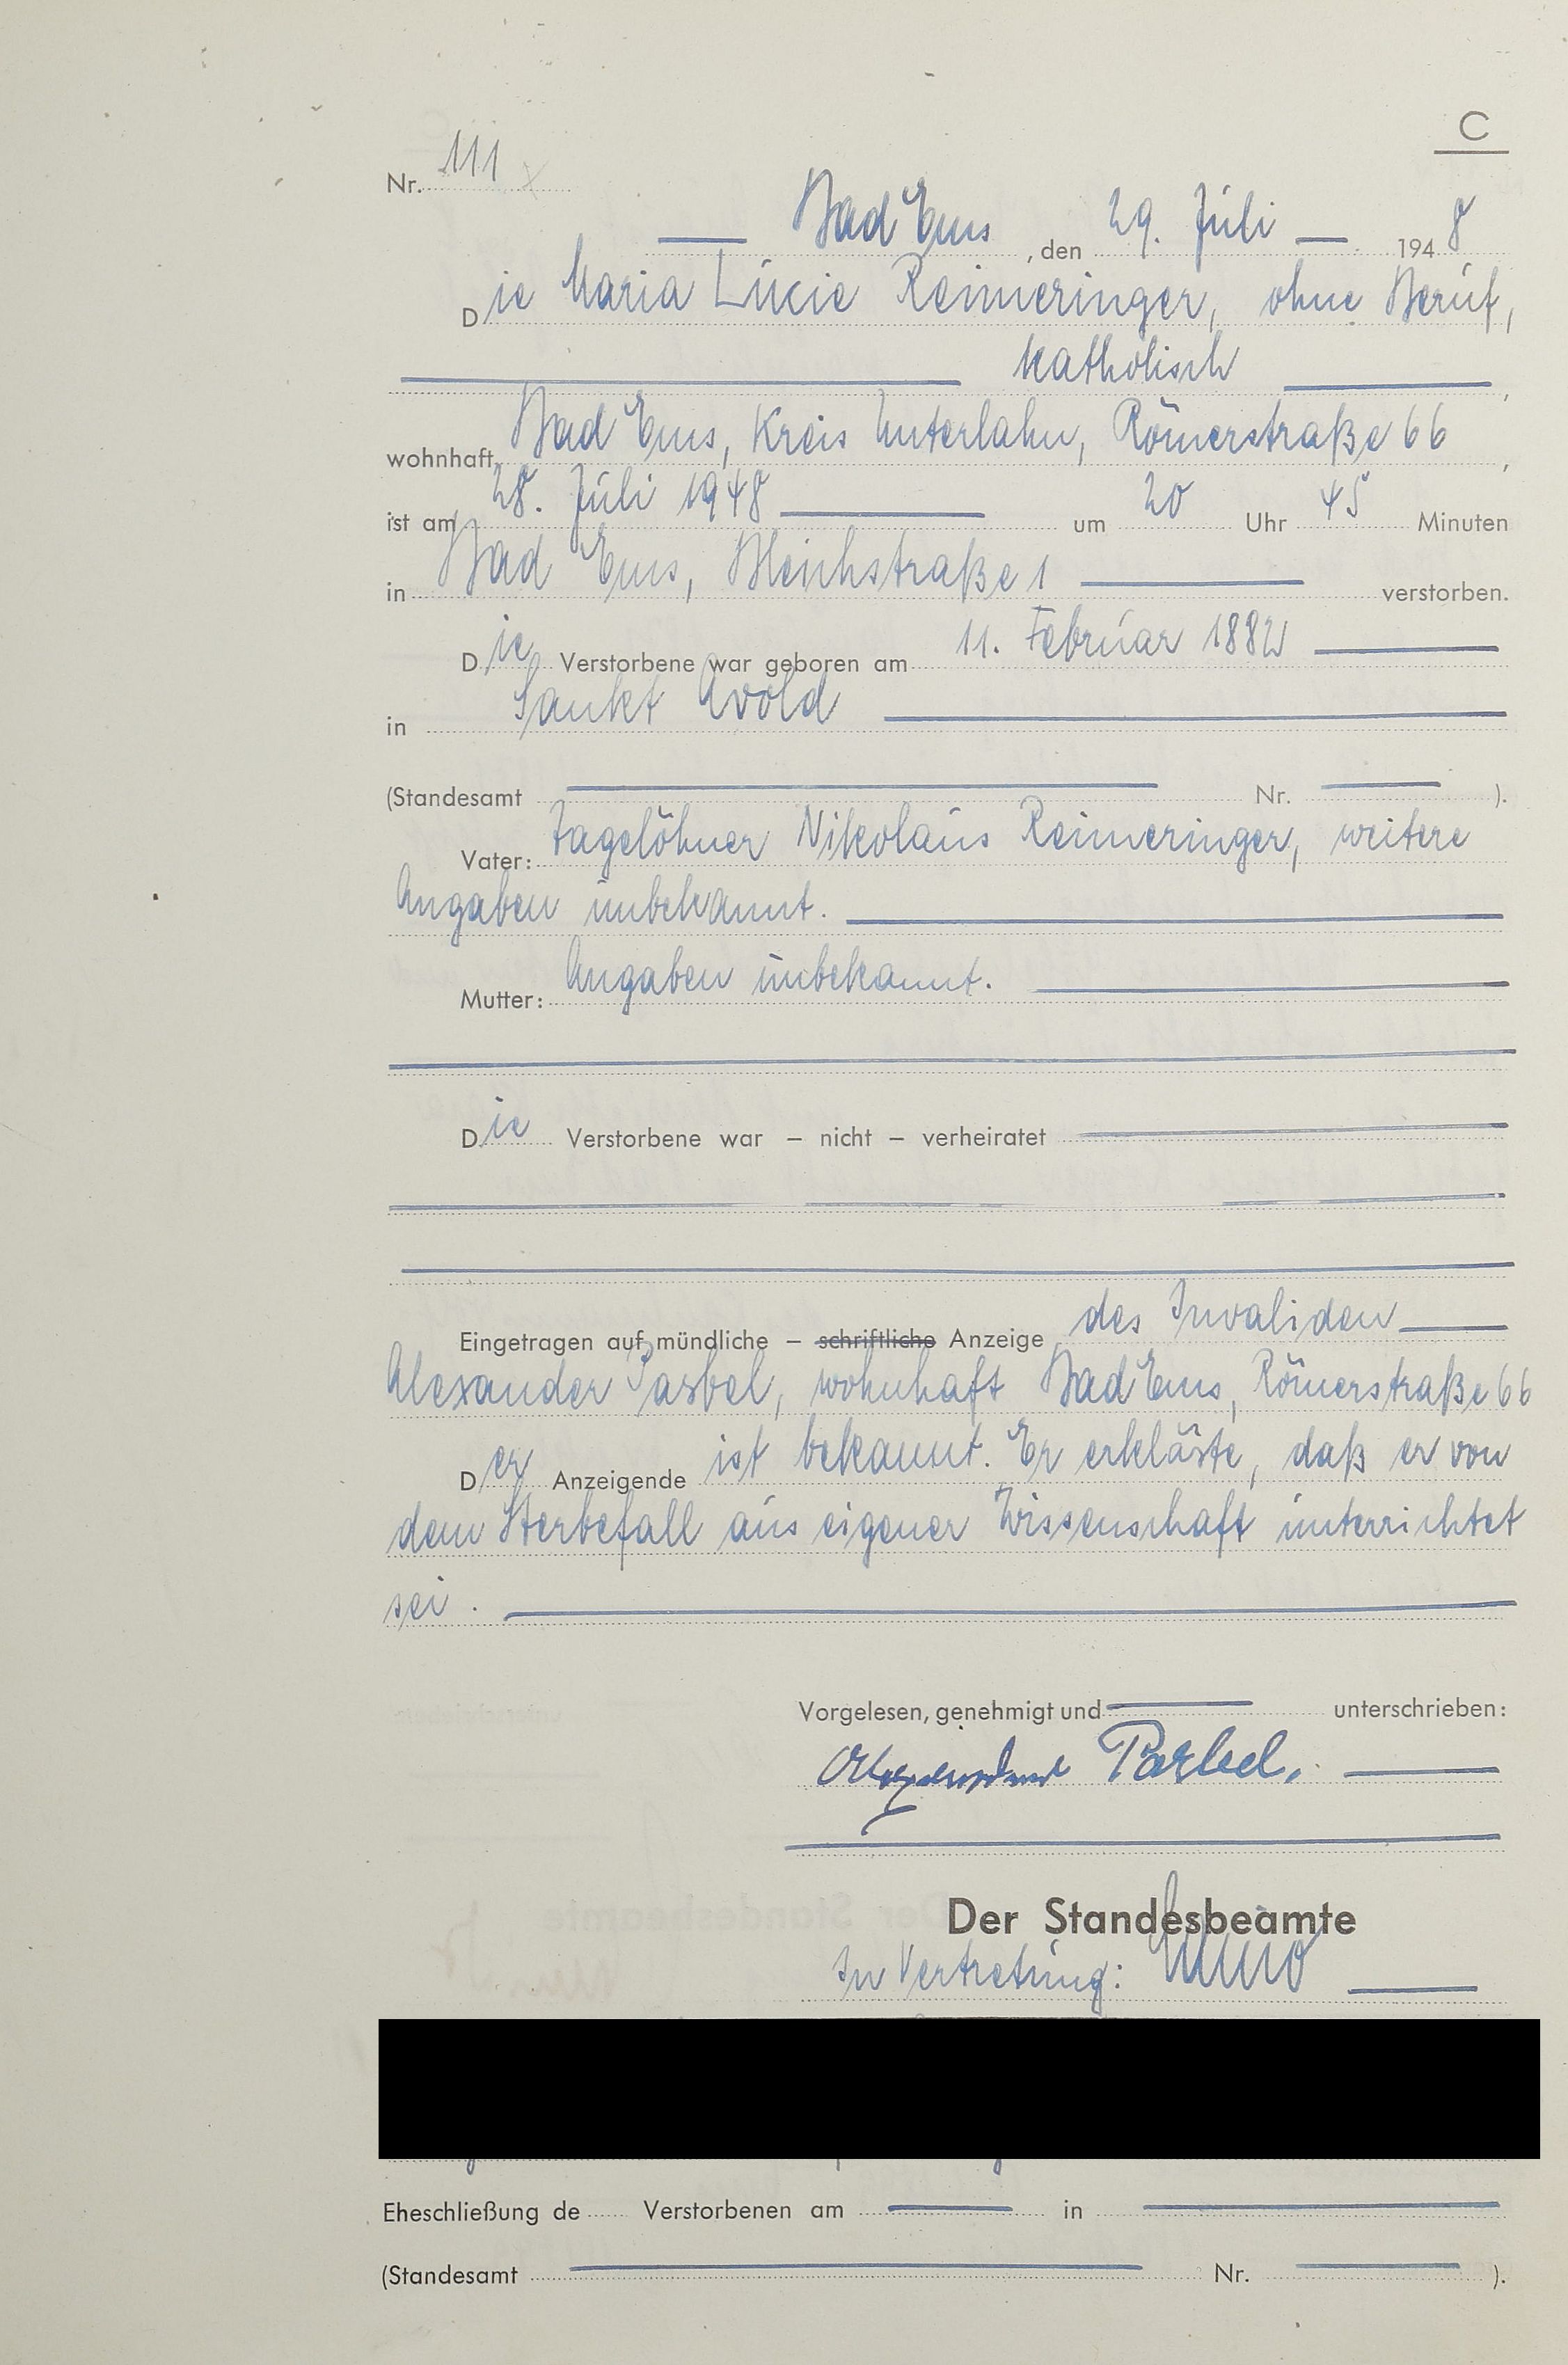 C
Nr. 111
Bad Ems, den 29. Juli 1948
Die Maria Lucie Reimeringer, ohne Beruf,
katholisch,
wohnhaft Bad Ems, Kreis Unterlahn, Römerstraße 66,
ist am 28. Juli 1948 um 20 Uhr 45 Minuten
in Bad Ems, Bleichstraße 1 verstorben.
Die Verstorbene war geboren am 11. Februar 1882
in Sankt Avold
(Standesamt Nr. ).
Vater: Tagelöhner Nikolaus Reimeringer, weitere
Angaben unbekannt.
Mutter: Angaben unbekannt.
Die Verstorbene war – nicht – verheiratet
Eingetragen auf mündliche – schriftliche Anzeige des Invaliden
Alexander Parbel, wohnhaft Bad Ems, Römerstraße 66
Der Anzeigende ist bekannt. Er erklärte, daß er von
dem Sterbefall aus eigener Wissenschaft unterrichtet
sei.
Vorgelesen, genehmigt und unterschrieben:
Alexander Parbel.
Der Standesbeamte
In Vertretung:
Eheschließung de Verstorbenen am in
(Standesamt Nr. ).